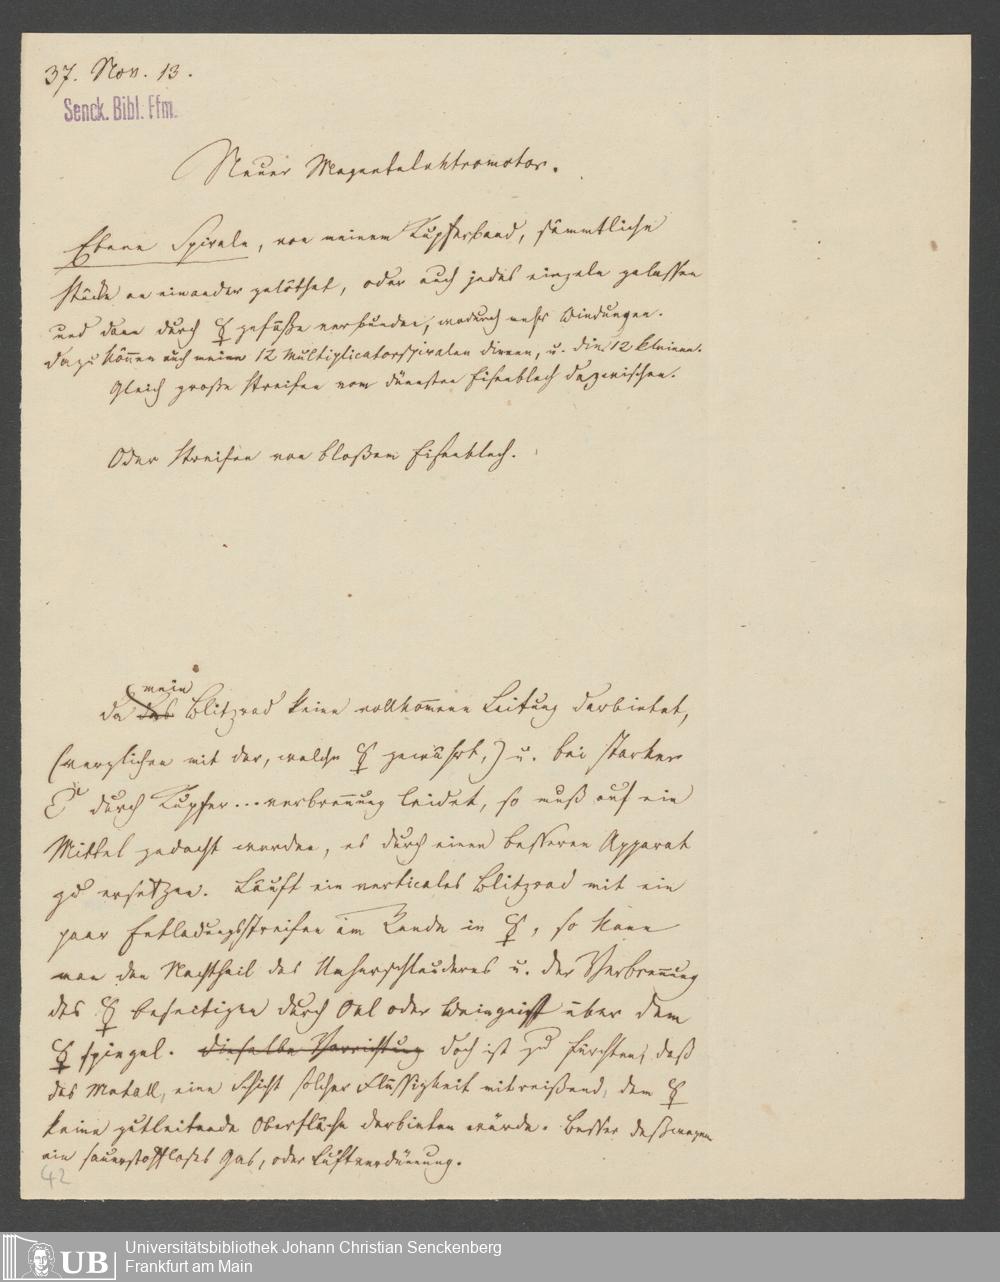 37. Nov. 13.
Senck. Bibl. Ffm.
Neuer Magentelektromotor.
Ebene Spirale, von meinem Kupferband, sämmtliche
Stücke an einander gelöthet, oder auch jedes einzeln gelassen
und dann durch ☿ gefäße verbunden, wodurch mehr Windungen.
dazu können auch meine 12 Multiplicatorspiralen dienen, u. die 12 kleinen.
Gleich große Streifen vom dünnsten Eisenblech dazwischen.
Oder Streifen von bloßem Eisenblech.
mein
da das Blitzrad keine vollkommene Leitung darbietet,
(verglichen mit der, welche ☿ gewährt,) u. bei starker
durch Kupfer...verbrennung leidet, so muß auf ein
Mittel gedacht werden, es durch einen besseren Apparat
zu ersetzen. Läuft ein verticales Blitzrad mit ein
paar Entladungsstreifen im Rande in ☿, so kann
man den Nachtheil des Umherschleuderns u. der Verbrennung
des ☿ beseitigen durch Oel oder Weingeist über dem
☿ spiegel. dieselbe Vorrichtung doch ist zu fürchten, daß
das Metall, eine Schicht solcher Flüssigkeit mitreißend, dem ☿
keine gutleitende Oberfläche darbieten würde. Besser deßwegen
ein sauerstoffloses Gas, oder Luftverdünnung.
42
UB
Universitätsbibliothek Johann Christian Senckenberg
Frankfurt am Main